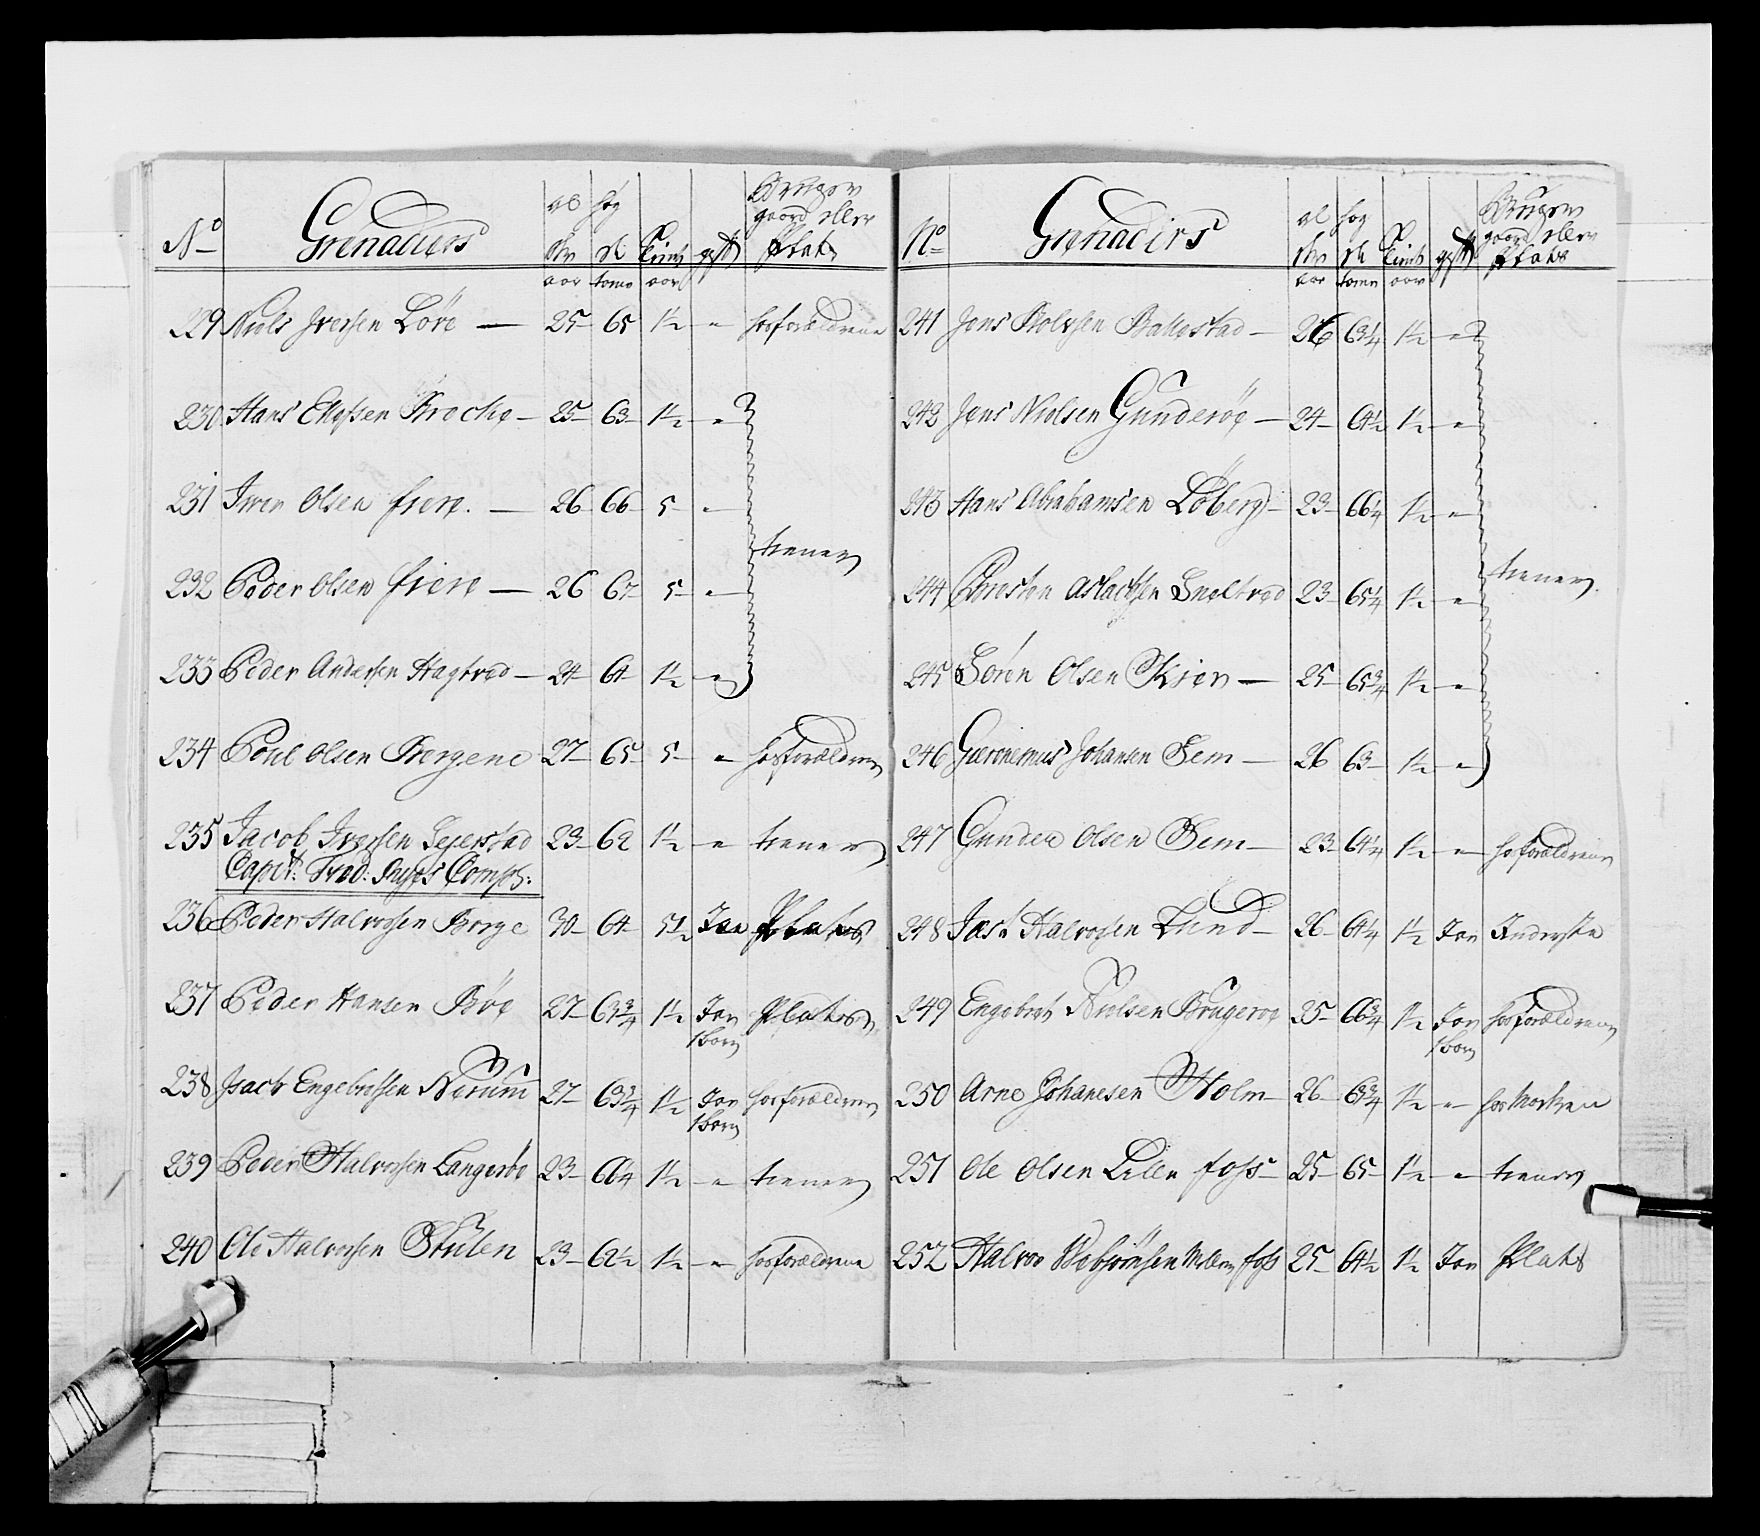 No Grenadiers al der høg de tient gift Bruger gaard eller Plads
aar tomr aar
229 Niols Iversen Löve — 25 65 1½ " hos forældrene
230 Hans Ellefsen Broche — 25 63 1½ "
231 Iver Olsen fiere. — 26 66 5 "
tiener
232 Peder Olsen fiere — 26 67 5 "
233 Peder Andersen Hagtvedt — 24 64 1½ "
234 Poul Olsen Bergene 27 65 5 " hos forældrene
235 Jacob Iversen Sejerstad 23 62 1½ " tiener
Capit: Fred: Comp:
236 Peder Halvorsen Borge 30 64 5½ Jaa Plads
237 Peder Hansen Böe 27 63¾ 1½ Jaa 1 barn Plads
238 Isach Engebretsen Nerum 27 63¾ 1½ Jaa 1 barn hos forældrene
239 Peder Halvorsen Langeröe 23 1½ " tiener
240 Ole Halvorsen Stulen 23 62½ 1½ " hos forældrene
No Grenadirs al der høg de tient gift Bruger gaard eller Plads
aar tomr aar
241 Jens Rolvsen Ballestad — 26 63¼ 1½ "
242 Jens Nielsen Gunderöe — 24 64½ 1½ "
243 Hans Abrahamsen Löberg — 23 66¼ 1½ "
tiener
244 Chresten Aslachsen Smeltved 23 65¼ 1½ "
245 Sören Olsen Kiær — 25 65¾ 1½ "
246 Gæronemus Johansen Sem — 26 63 1½ "
247 Gunder Olsen Sem — 23 64¼ 1½ " hos forældrene
248 Halvorsen Lund — 26 64¼ 1½ Jaa Inderste
249 Engebret Nielsen Brugeroe 25 66¾ 1½ Jaa 1 barn hos forældrene
250 Arne Johanesen Holm 26 63¾ 1½ " hos Moderen
251 Ole Olsen Lilen foss — 25 65 1½ " tiener
252 Halvor foss 25 64½ 1½ Jaa Plads